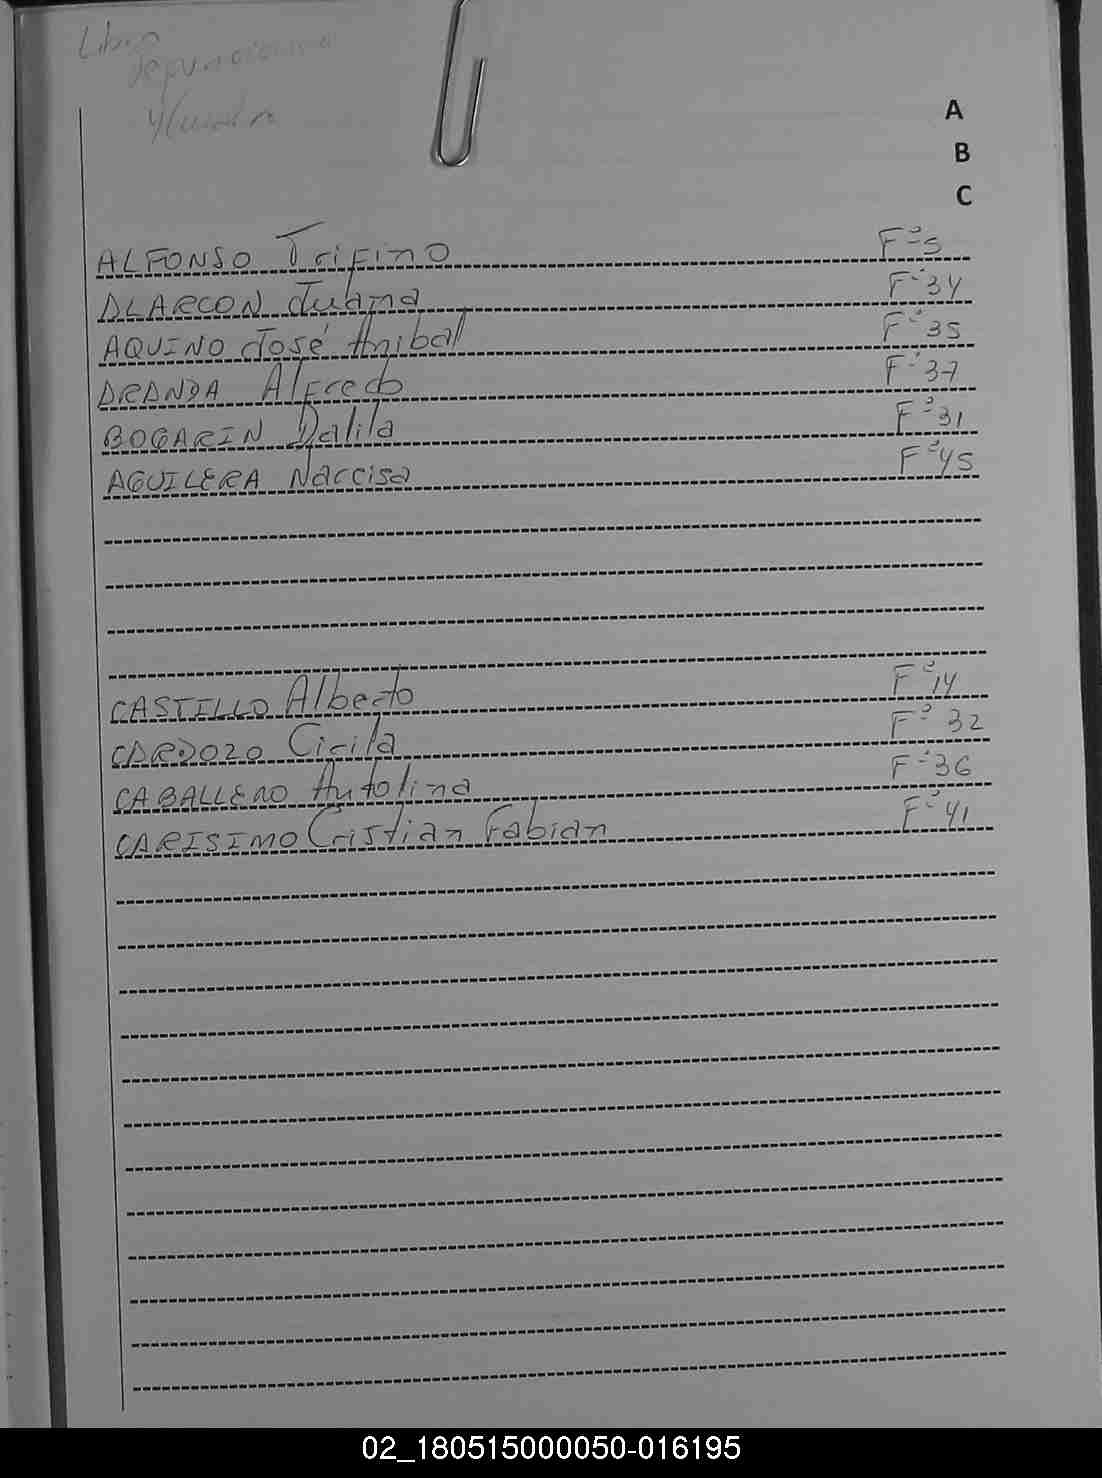 Libro
defunciones
A
B
C
ALFONSO Trifino F=º5
ALARCON Juana F=º34
AQUINO José Anibal F=º35
ARANDA Alfredo F=º37
BOGARIN Dalila F=º31
AGUILERA Narcisa F=º45
CASTILLO Alberto F=º14
CARDOZO Cirila F=º32
CABALLERO Antolina F=º36
CARISIMO Cristian Fabian F=º41
02_180515000050-016195